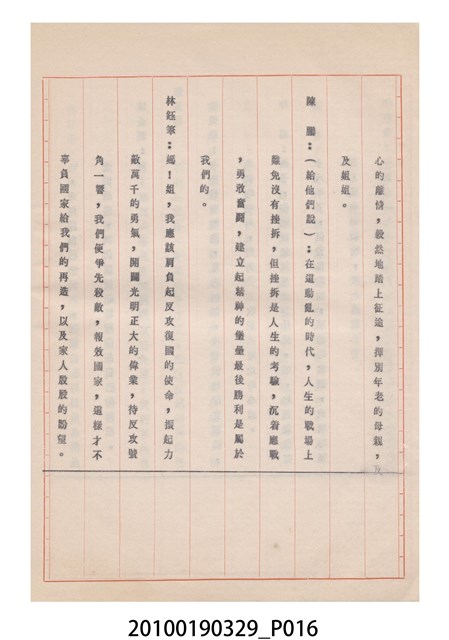 心的離情，毅然地踏上征途，揮別年老的母親，及
及姐姐。
陳　鵬：（給他們說）：在這動亂的時代，人生的戰場上
難免沒有挫折，但挫折是人生的考驗，沉着應戰
，勇敢奮鬪，建立起精神的堡壘最後勝利是屬於
我們的。
林鈺筆：嗯！姐，我應該肩負起反攻復國的使命，振起力
敵萬千的勇氣，開闢光明正大的偉業，待反攻號
角一響，我們便爭先殺敵，報效國家，這樣才不
辜負國家給我們的再造，以及家人殷殷的盼望。
20100190329_P016